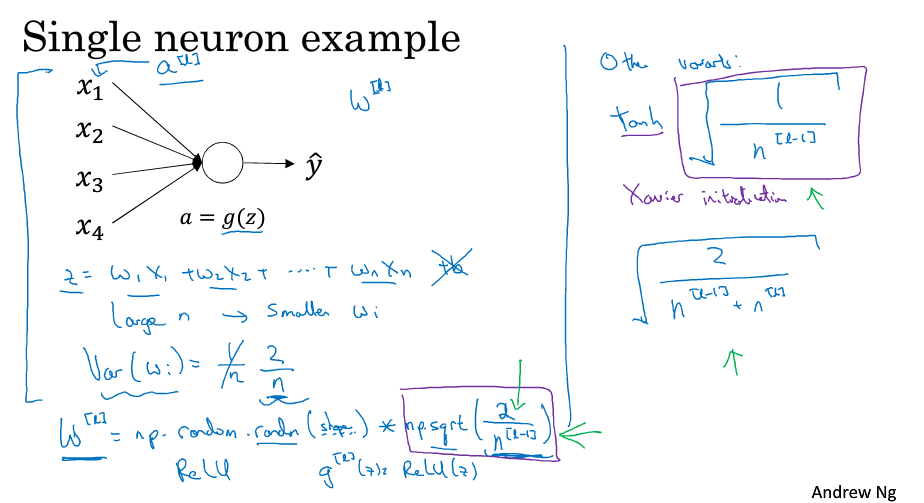 Single neuron example
a^[l]
w^[l]
x₁
x₂
x₃
x₄
ŷ
a = g(z)
z = w₁x₁ + w₂x₂ + ····· + wₙxₙ + b
Large n → Smaller wᵢ
Var(wᵢ) = 1/n 2/n
W^[l] = np.random.randn(shape) * np.sqrt(2/n^[l-1])
ReLU g^[l](z) = ReLU(z)
Other variants:
tanh √(1/n^[l-1])
Xavier initialization ↑
√(2/(n^[l-1] + n^[l]))
↑
Andrew Ng